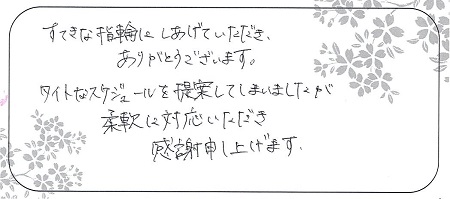 すてきな指輪にしあげていただき、
ありがとうございます。
タイトなスケジュールを提案してしまいましたが
柔軟に対応いただき
感謝申し上げます。